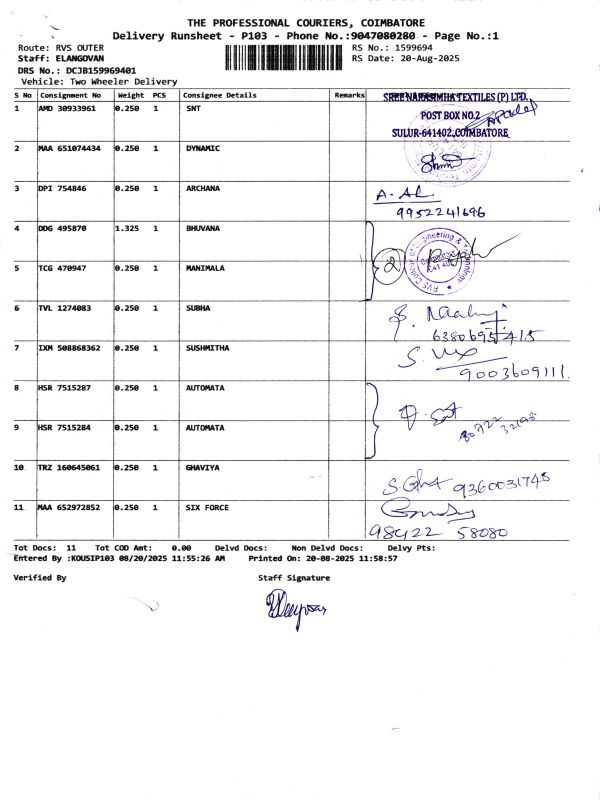 THE PROFESSIONAL COURIERS, COIMBATORE
Delivery Runsheet - P103 - Phone No.:9047080280 - Page No.:1
Route: RVS OUTER
RS No.: 1599694
Staff: ELANGOVAN
RS Date: 20-Aug-2025
DRS No.: DCJB159969401
Vehicle: Two Wheeler Delivery
S No Consignment No Weight PCS Consignee Details Remarks
SREE NARASIMHA TEXTILES (P) LTD.
1 AMD 30933961 0.250 1 SNT
POST BOX NO.2
SULUR-641402, COIMBATORE
2 MAA 651074434 0.250 1 DYNAMIC
3 DPI 754846 0.250 1 ARCHANA
9952241696
4 DDG 495870 1.325 1 BHUVANA
2
RVS College of Engineering & Technology
5 TCG 470947 0.250 1 MANIMALA
6 TVL 1274083 0.250 1 SUBHA
6380695415
7 IXM 508868362 0.250 1 SUSHMITHA
9003609111.
8 HSR 7515287 0.250 1 AUTOMATA
9 HSR 7515284 0.250 1 AUTOMATA
10 TRZ 160645061 0.250 1 GHAVIYA
9360031745
11 MAA 652972852 0.250 1 SIX FORCE
98422 58080
Tot Docs: 11 Tot COD Amt: 0.00 Delvd Docs: Non Delvd Docs: Delvy Pts:
Entered By :KOUSIP103 08/20/2025 11:55:26 AM Printed On: 20-08-2025 11:58:57
Verified By
Staff Signature